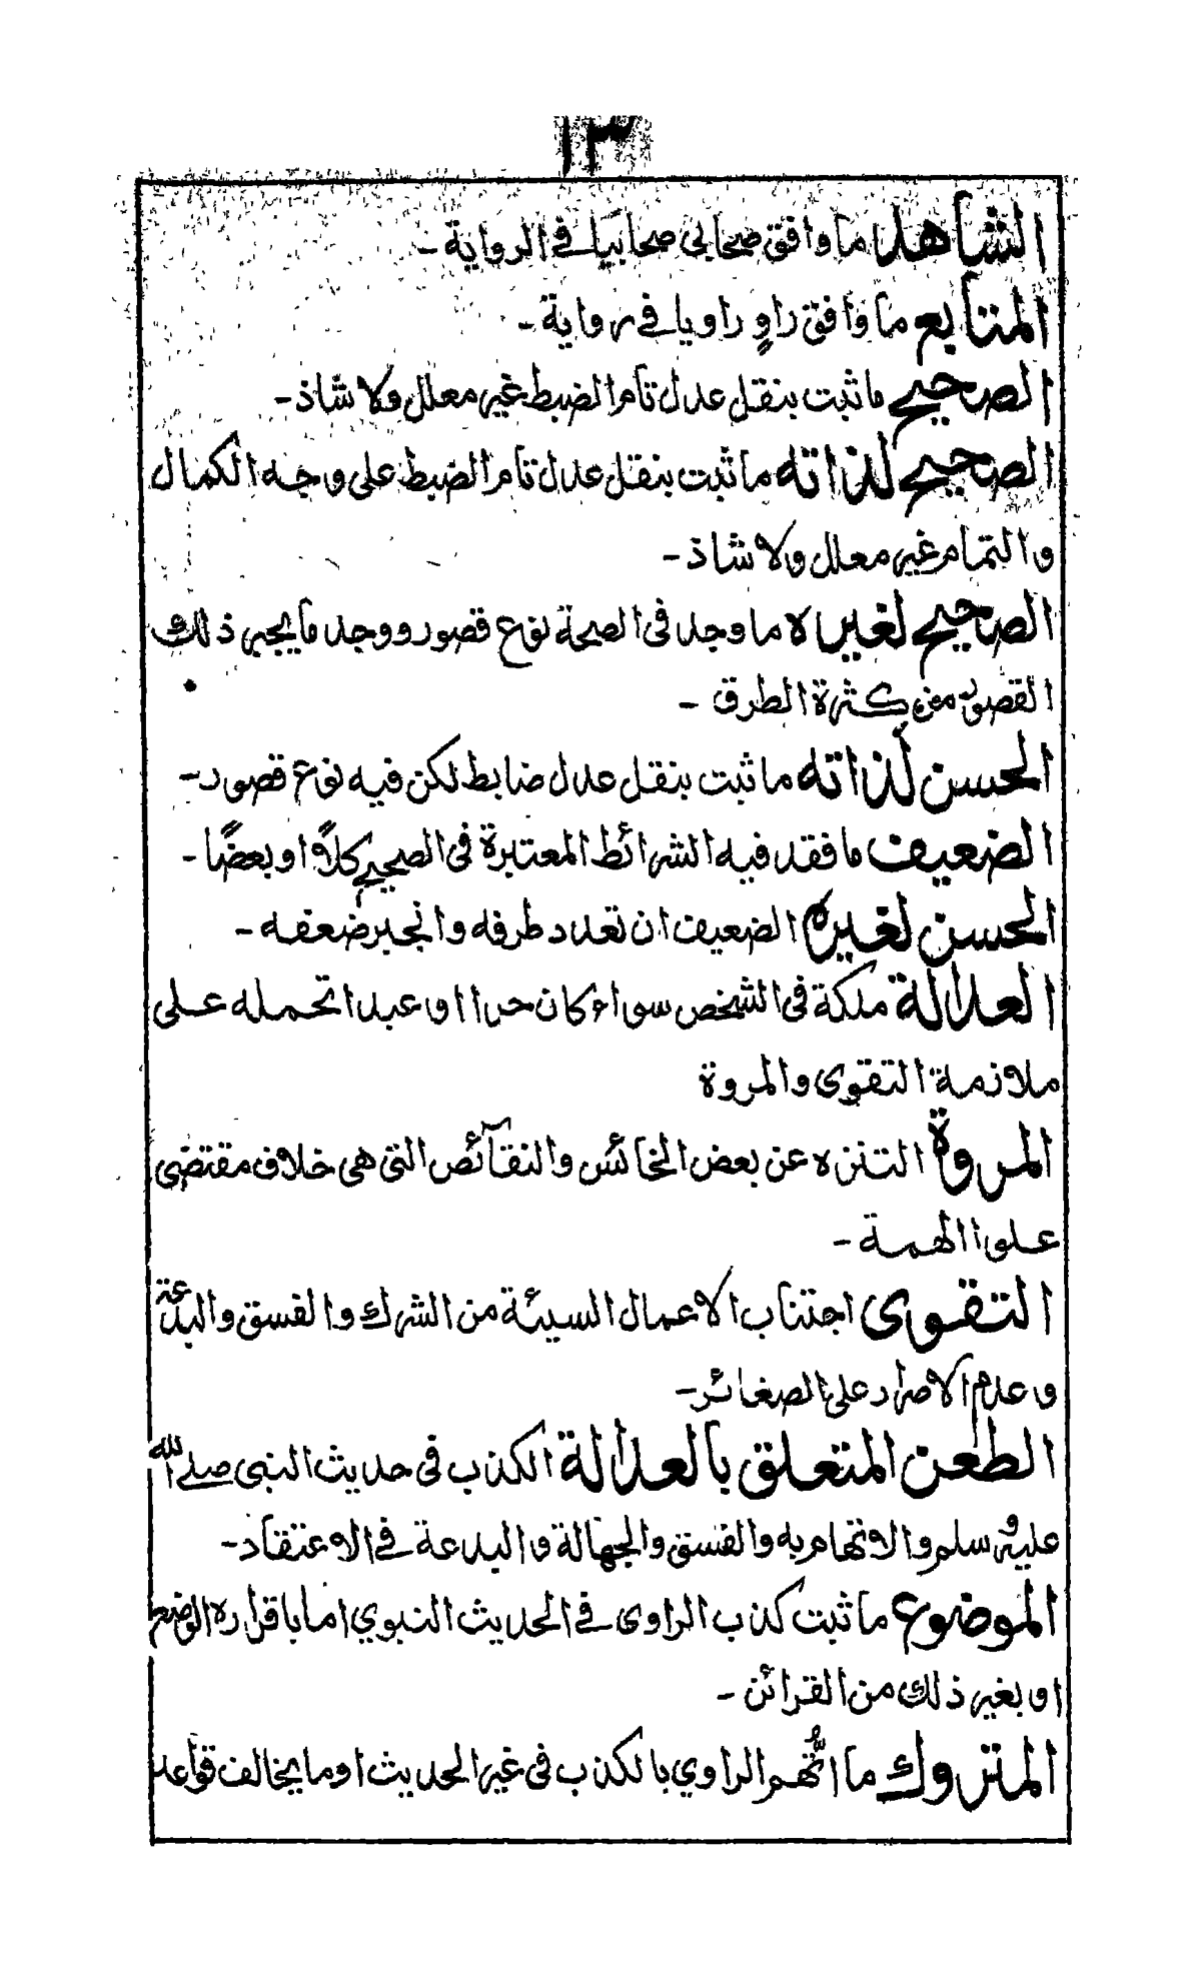 ١٣
الشاهد ما وافق صحابي صحابيا في الرواية -
المتابع ما وافق راوٍ راويا في رواية -
الصحيح ما ثبت بنقل عدل تام الضبط غير معلل ولا شاذ -
الصحيح لذاته ما ثبت بنقل عدل تام الضبط على وجه الكمال
والتمام غير معلل ولا شاذ -
الصحيح لغيره ما وجد فى الصحة نوع قصور ووجد ما يجبر ذلك
القصور من كثرة الطرق -
الحسن لذاته ما ثبت بنقل عدل ضابط لكن فيه نوع قصور -
الضعيف ما فقد فيه الشرائط المعتبرة فى الصحيح كلاً او بعضًا -
الحسن لغيره الضعيف ان تعدد طرفه وانجبر ضعفه -
العدالة ملكة فى الشخص سواء كان حرا او عبدا تحمله على
ملازمة التقوى والمروة
المروة التنزه عن بعض الخائس والنقآئص التى هى خلاف مقتضى
علو الهمة -
التقوى اجتناب الاعمال السيئة من الشرك والفسق والبدعة
وعدم الاصرار على الصغائر -
الطعن المتعلق بالعدالة الكذب فى حديث النبى صلے الله
عليه وسلم والاتهام به والفسق والجهالة والبدعة في الاعتقاد -
الموضوع ما ثبت كذب الراوى في الحديث النبوي اما باقراره الوضع
او بغير ذلك من القرائن -
المتروك ما اتُّهم الراوي بالكذب فى غير الحديث او ما يخالف قواعد